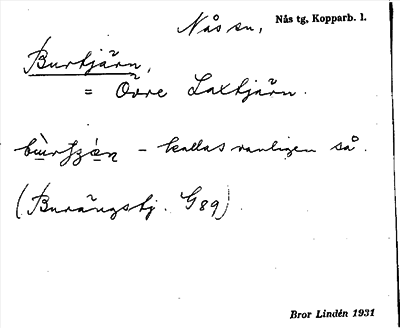 Nås sn, Nås tg, Kopparb. l.
Burtjärn,
= Övre Laxtjärn.
– kallas vanligen så.
(Burängstj. G89)
Bror Lindén 1931